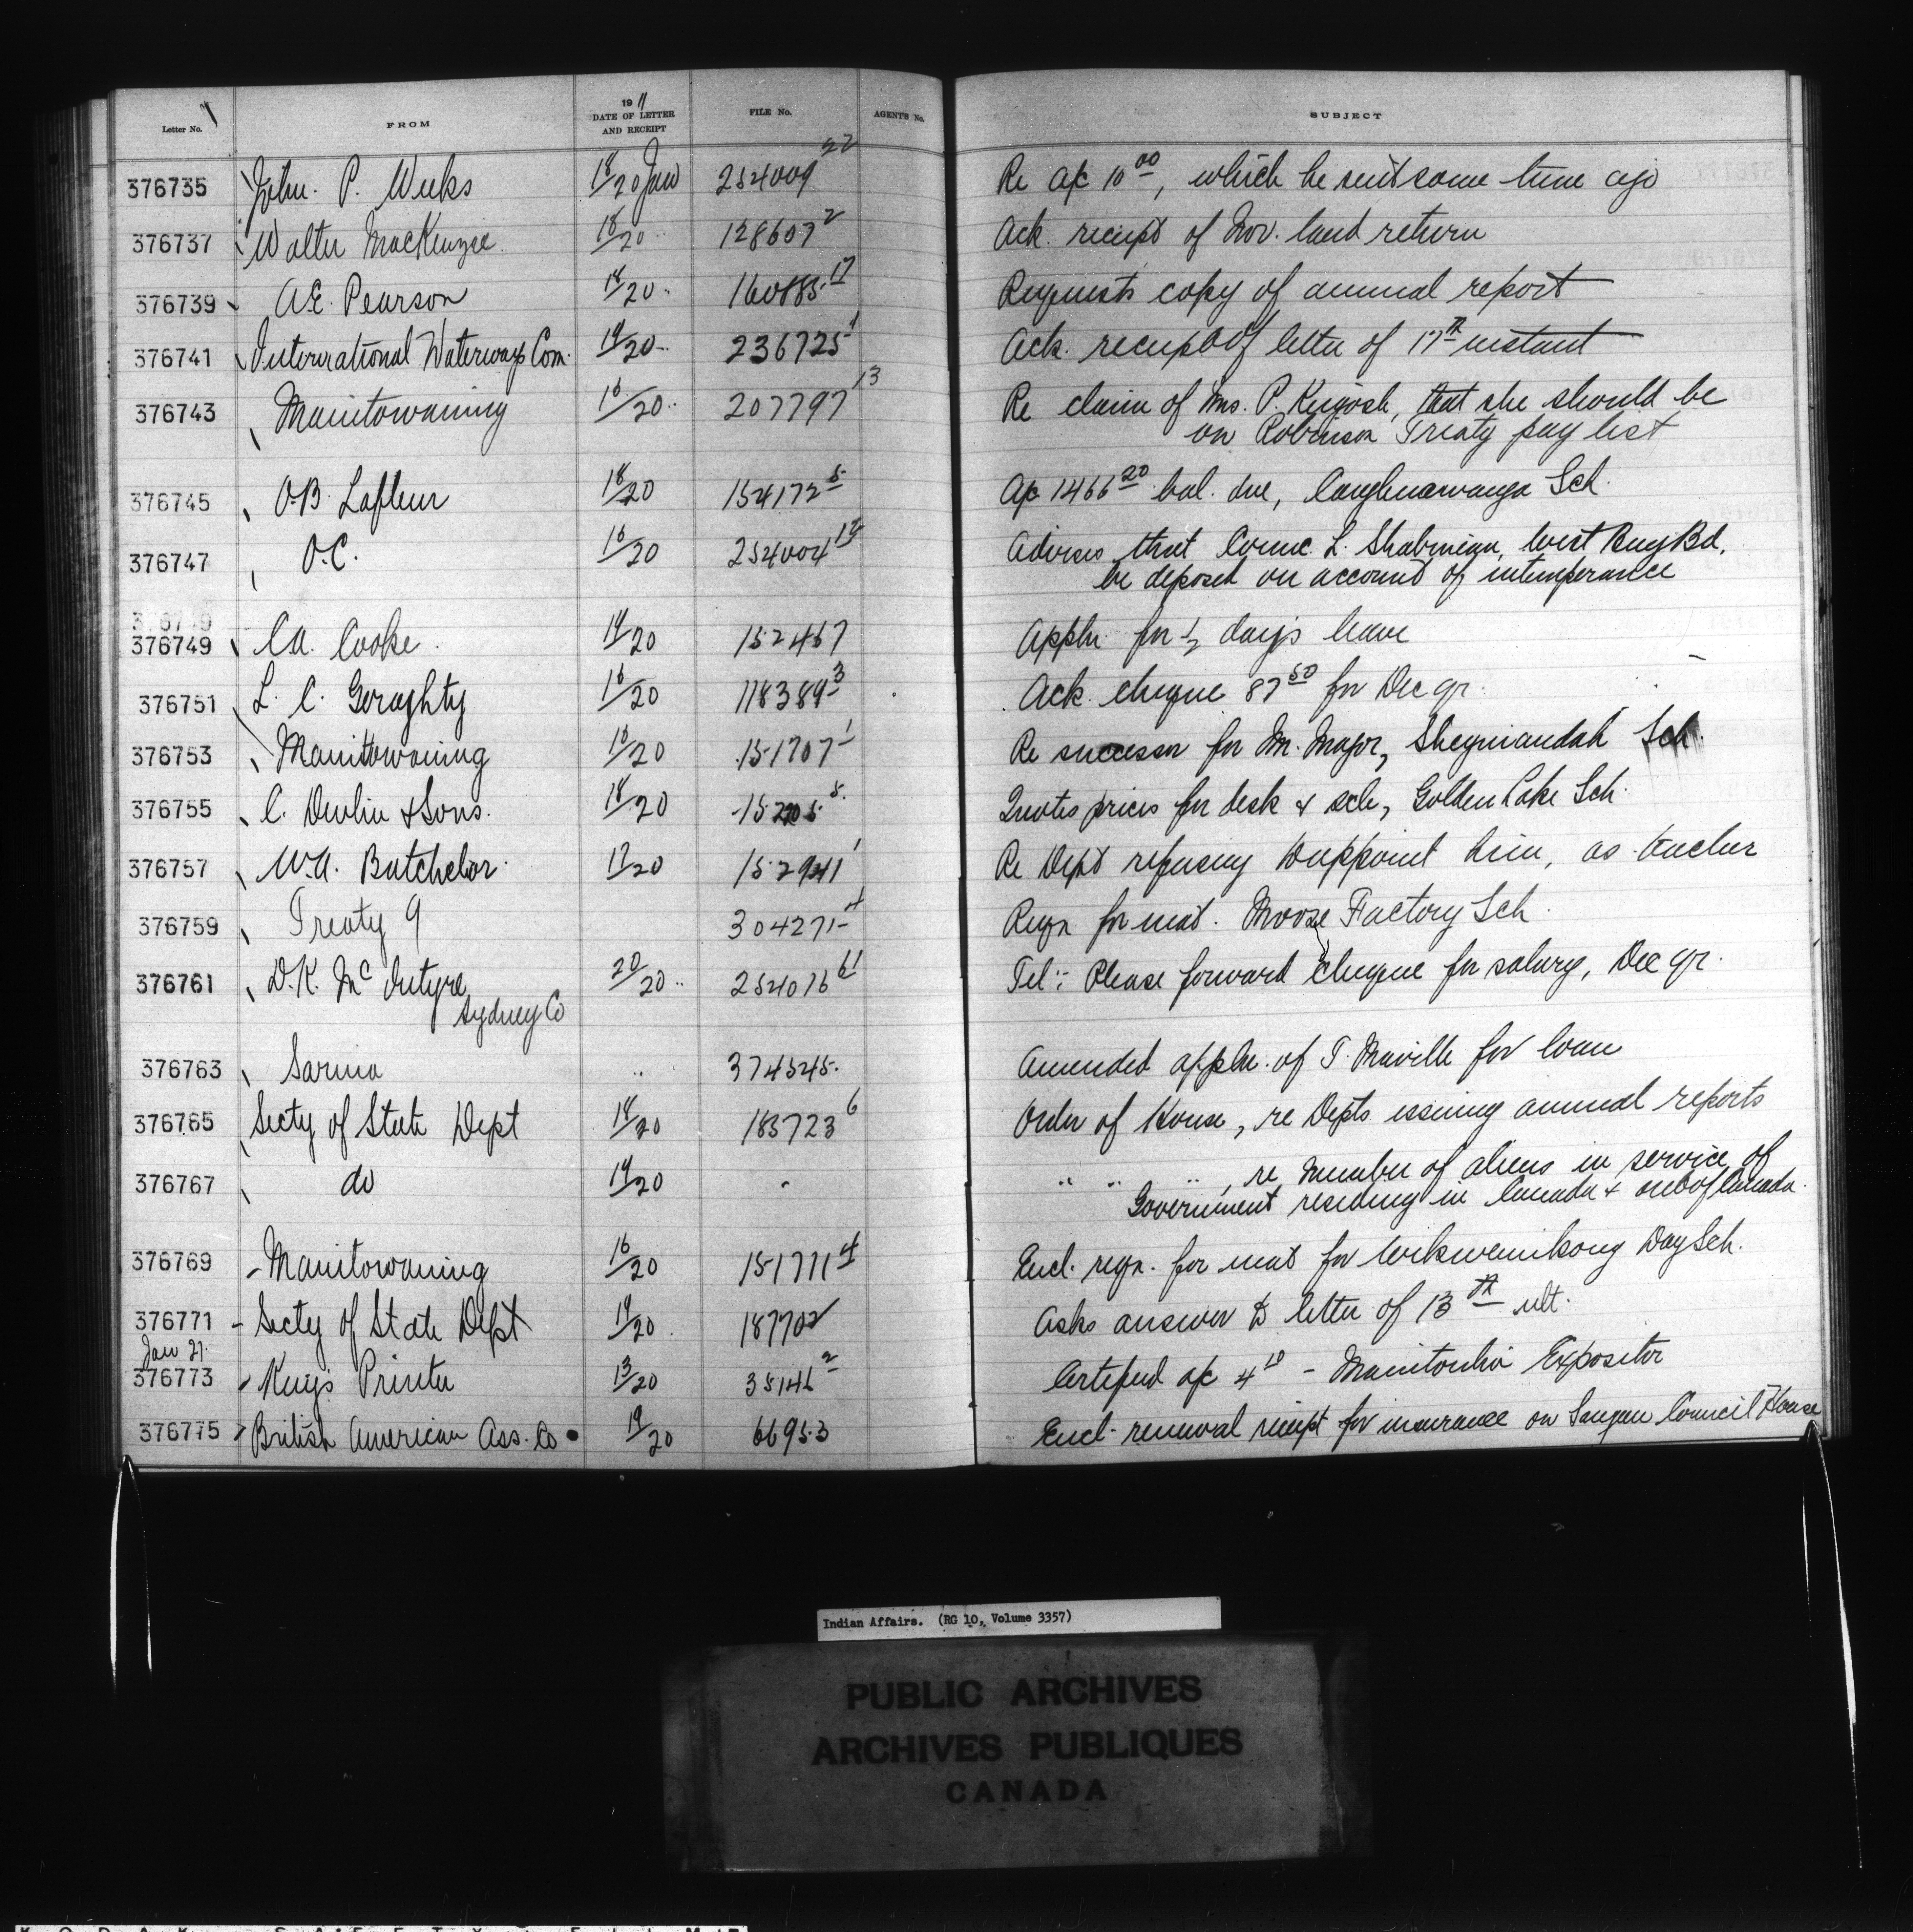 Letter No. FROM 1911 DATE OF LETTER AND RECEIPT FILE No. AGENT'S No. SUBJECT
376735 John. P. Weeks 18/20 Jan 254009 22 Re a/c 10 00, which he sent some time ago
376737 Walter MacKenzie 18/20 128607 2 Ack. receipt of Nov. land return
376739 A.E. Pearson 18/20 160885 17 Requests copy of annual report
376741 International Waterways Com. 19/20 236725 1 Ack. receipt of letter of 17th instant
376743 Manitowaning 16/20 207797 13 Re claim of Mrs. P. that she should be
on Robinson Treaty pay list
376745 O.B. Lafleur 18/20 154172 5 a/c 1466 20 bal. due, Caughnawauga Sch.
376747 O.C. 16/20 254004 12 Advises that Counc. L. West Bay Bd.
be deposed on account of intemperance
376749 C.A. Cooke. 19/20 152457 Appln. for 1/2 day's leave
376751 L. C. Geraghty 16/20 118389 3 Ack. cheque 87 50 for Dec qr.
376753 Manitowaning 16/20 151707 1 Re successor for Mr. Major, Shegwiandah Sch.
376755 C. Devlin & Sons. 18/20 Quotes prices for desk & Golden Lake Sch.
376757 W.A. Batchelor. 17/20 152941 1 Re Dept refusing to appoint him, as teacher
376759 Treaty 9 304271 4 Reqn for mat. Moose Factory Sch.
376761 D.K. McIntyre 20/20 " 254016 61 Tel: Please forward cheque for salary, Dec qr.
Sydney Co
376763 Sarnia " 374545. Amended appln. of T. Maville for loan
376765 Secty of State Dept 18/20 185723 6 Order of House, re Depts issuing annual reports
376767 do 19/20 " " " " , re number of aliens in service of
Government residing in Canada & out of Canada.
376769 Manitowaning 16/20 151711 4 Encl. reqn. for mat for Wikwemikong Day Sch.
376771 Secty of State Dept 19/20 187702 Asks answer to letter of 13th ult.
Jan 21.
376773 King's Printer 13/20 35146 2 Certified a/c 4 10 - Manitoulin Expositor
376775 British American Ass. Co 19/20 66953 Encl. renewal receipt for insurance on Saugeen Council House
Indian Affairs. (RG 10, Volume 3357)
PUBLIC ARCHIVES
ARCHIVES PUBLIQUES
CANADA